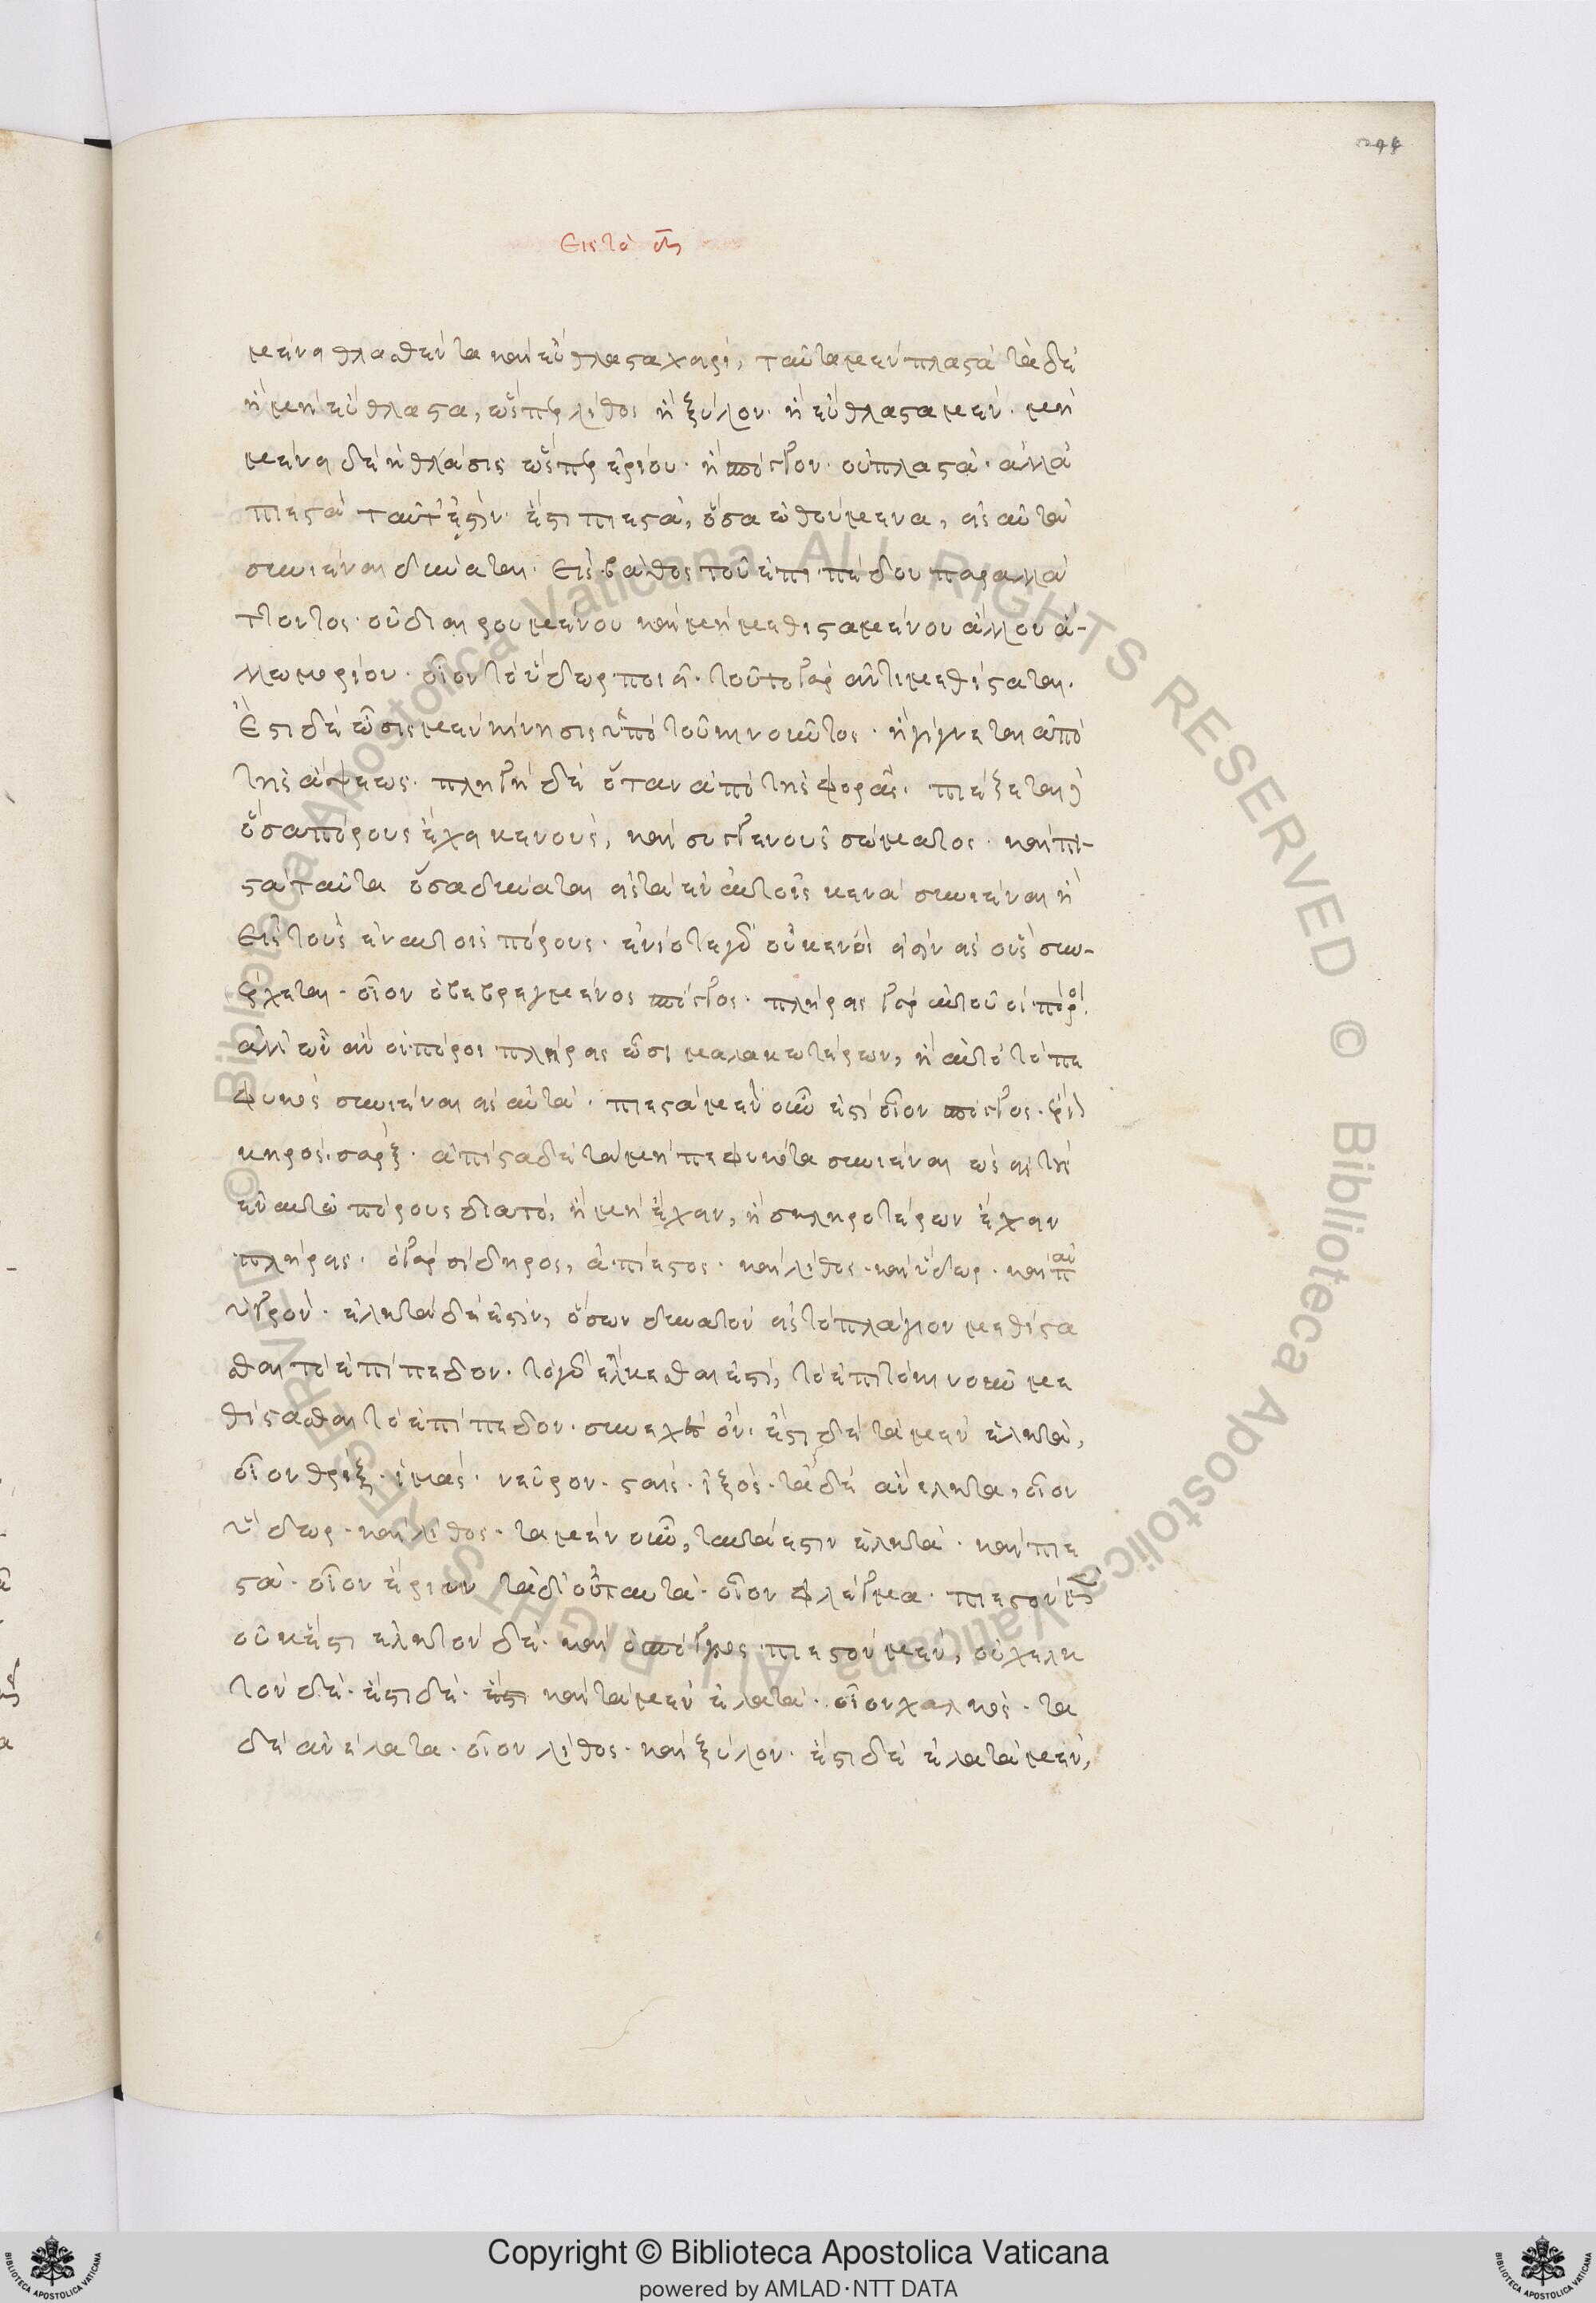 244
Εἰς τὸ
μένει θλασθέντα καὶ εὔθλαστα χειρί, ταῦτα μὲν πλαστά τὰ δὲ
ἢ μὴ εὔθλαστα, ὥσπερ λίθος ἢ ξύλον· ἢ εὔθλαστα μέν· μὴ
μένει δὲ ἡ θλάσις ὥσπερ ἐρίου· ἢ σπόγγου· οὐ πλαστά· ἀλλὰ
πιεστὰ ταῦτ' ἐστίν· ἔστι πιεστά, ὅσα ὠθούμενα, εἰς αὑτὰ
συνιέναι δύναται· εἰς βάθος τοῦ ἐπιπέδου παραλλά
ττοντος· οὐ διαιρουμένου καὶ μὴ μεθισταμένου ἄλλου ἄ-
λλω μορίου· οἷον τὸ ὕδωρ ποιεῖ· τοῦτο γὰρ ἀντιμεθίσταται.
Ἔστι δὲ ὦσις μὲν κίνησις ὑπὸ τοῦ κινοῦντος· ἡ γίγνεται ἀπὸ
τῆς ἅψεως· πληγὴ δὲ ὅταν ἀπὸ τῆς φορᾶς· πιέζεται δὲ
ὅσα πόρους ἔχει κενοὺς, καὶ συγγενοῦς σώματος· καὶ πι-
στὰ ταῦτα ὅσα δύναται εἰς τὰ ἐν αὑτοῖς κενὰ συνιέναι ἢ
εἰς τοὺς ἐν αὑτοῖς πόρους· ἐνίοτε γὰρ οὐ κενοί εἰσιν εἰς οὓς συν-
έρχεται· οἷον ὁ βεβρεγμένος σπόγγος· πλήρεις γὰρ αὐτοῦ οἱ πόροι.
ἀλλ' ὧν ἂν οἱ πόροι πλήρεις ὦσι μαλακωτέρων, ἢ αὐτὸ τὸ πε
φυκὸς συνιέναι εἰς αὑτά· πιεστὰ μὲν οὖν ἐστὶ οἷον σπόγγος·
κηρός· σάρξ· ἀπίεστα δὲ τὰ μὴ πεφυκότα συνιέναι ὥσει εἰς τοὺς
ἐν αὑτῶ πόρους διὰ τὸ, ἢ μὴ ἔχειν, ἢ σκληροτέρων ἔχειν
πλήρεις· ὁ γὰρ σίδηρος, ἀπίεστος· καὶ λίθος· καὶ ὕδωρ· καὶ πᾶν
ὑγρόν· ἑλκτὰ δὲ ἐστὶν, ὅσων δυνατὸν εἰς τὸ πλάγιον μεθίστα
σθαι τὸ ἐπίπεδον· τὸ γὰρ ἕλκεσθαι ἐστὶ, τὸ ἐπὶ τὸ κινοῦν με
θίστασθαι τὸ ἐπίπεδον· συνεχὲς ὄν· ἔστι δὲ τὰ μὲν ἑλκτά,
οἷον θρίξ· ἱμάς· νεῦρον· σταῖς· ἰξός· τὰ δὲ ἀνέλκτα, οἷον
ὕδωρ· καὶ λίθος· τὰ μὲν οὖν, ταὐτά ἐστιν ἑλκτά· καὶ πιε
στά· οἷον ἔριον τὰ δ' οὐ ταὐτά· οἷον φλέγμα· πιεστὸν μὲν
οὐκ ἔστι ἑλκτὸν δέ· καὶ ὁ σπόγγος πιεστὸν μέν, οὐχ ἑλκ
τὸν δέ· ἔστι δὲ· ἔστι καὶ τὰ μὲν ἐλατά· οἷον χαλκός· τὰ
δὲ ἀνέλατα· οἷον λίθος· καὶ ξύλον· ἔστι δὲ ἐλατὰ μέν,
Copyright © Biblioteca Apostolica Vaticana
powered by AMLAD·NTT DATA